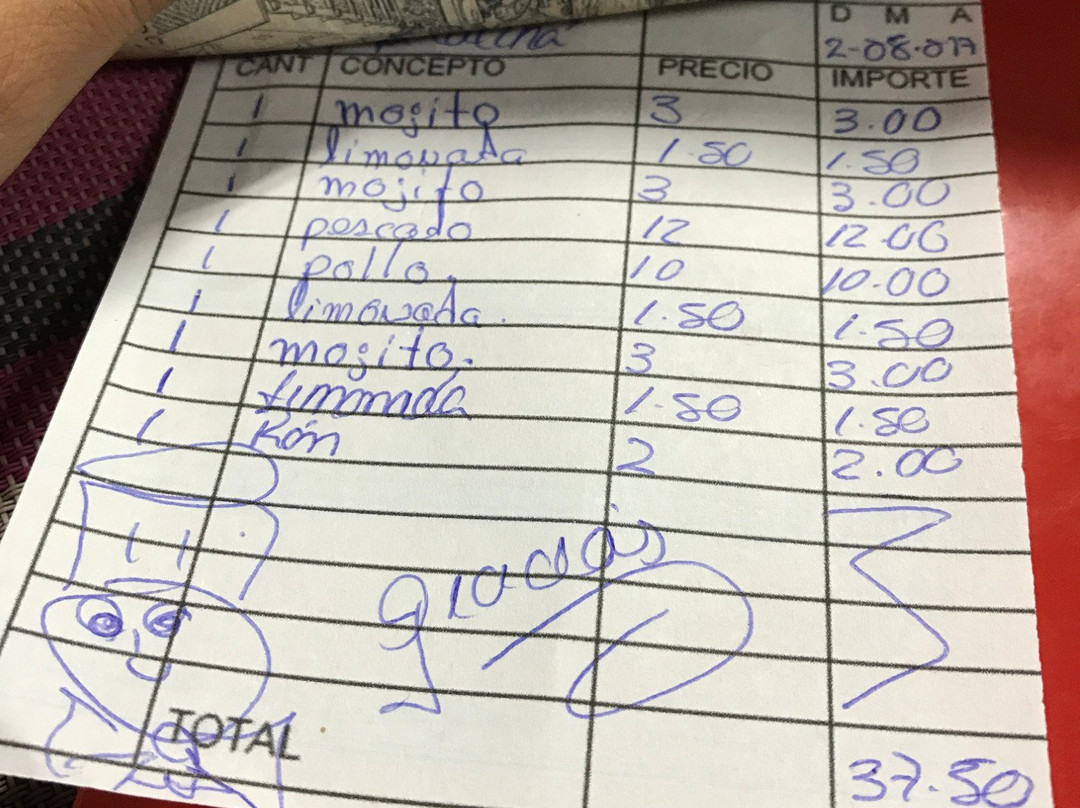 D M A
2-08-017
CANT CONCEPTO PRECIO IMPORTE
1 mosito 3 3.00
1 limonada 1.50 1.50
1 mojito 3 3.00
1 pescado 12 12.00
1 pollo. 10 10.00
1 limonada. 1.50 1.50
1 mosito. 3 3.00
1 limonada 1.50 1.50
1 Ron 2 2.00
gracias
TOTAL 37.50